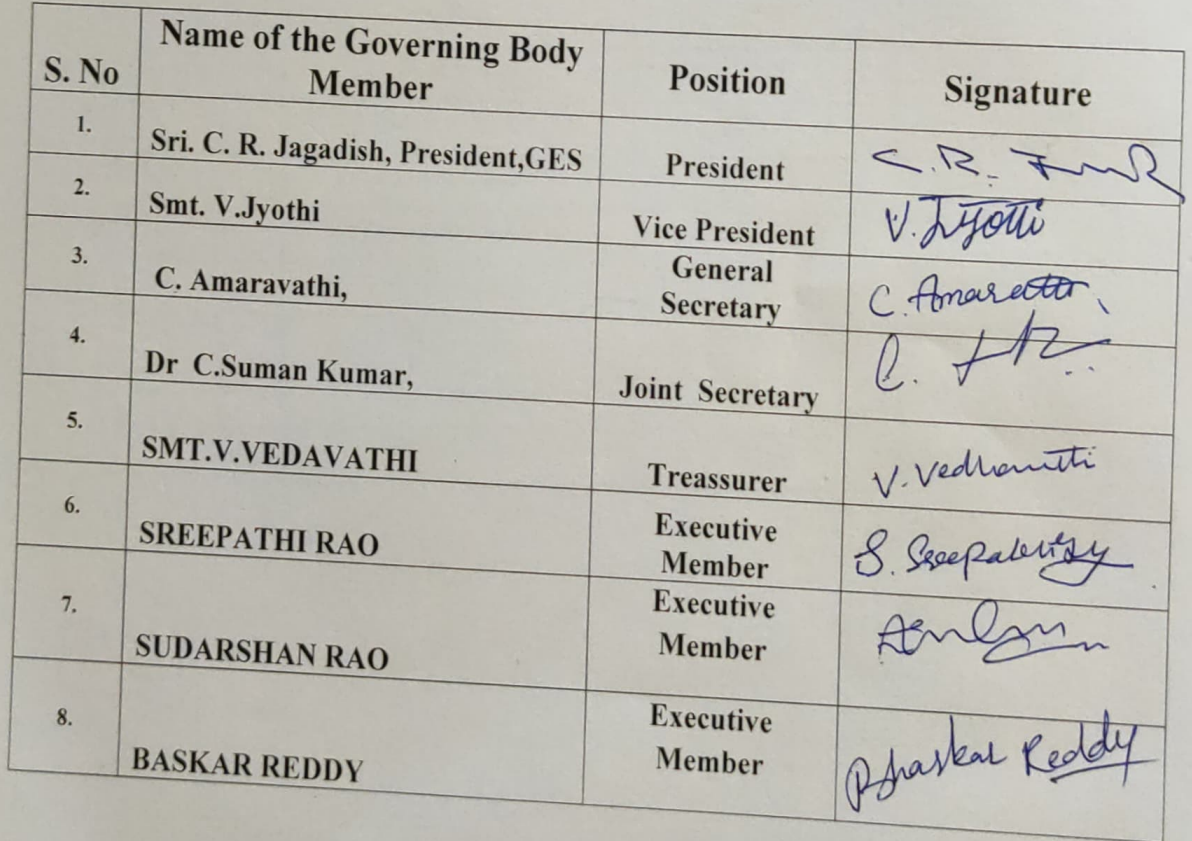 S. No
Name of the Governing Body
Member
Position
Signature
1.
Sri. C. R. Jagadish, President,GES
President
C.R.
2.
Smt. V.Jyothi
Vice President
V. Jyotti
3.
C. Amaravathi,
General
Secretary
C.
4.
Dr  C.Suman Kumar,
Joint  Secretary
C.
5.
SMT.V.VEDAVATHI
Treassurer
V.
6.
SREEPATHI RAO
Executive
Member
S.
7.
SUDARSHAN RAO
Executive
Member
8.
BASKAR REDDY
Executive
Member
Bhaskar Reddy